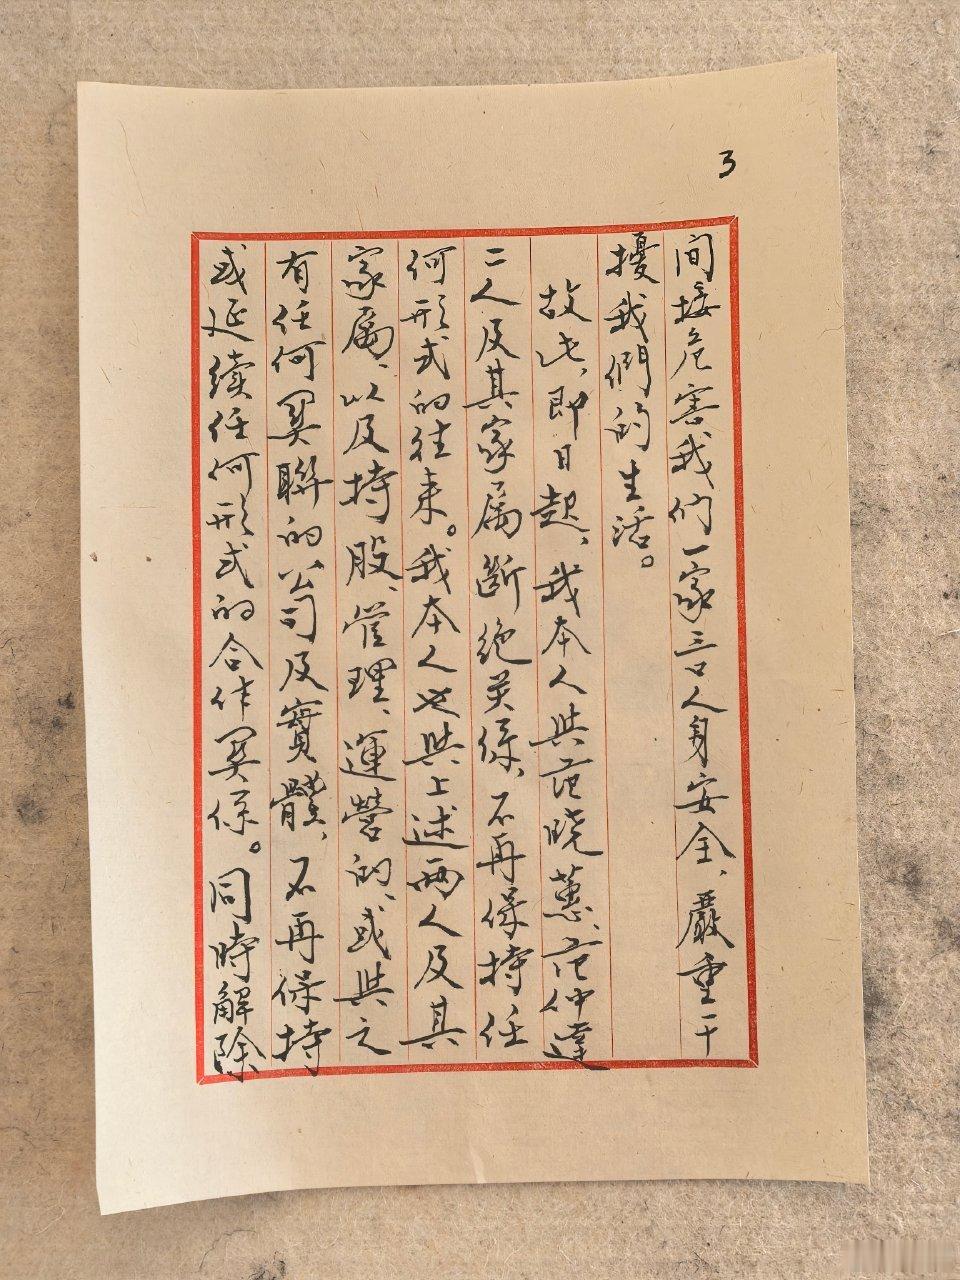 3
间接危害我们一家三口人身安全、嚴重干
擾我們的生活。
故此、即日起、我本人與范晓蕙、范仲達
二人及其家属斷绝关係、不再保持任
何形式的往来。我本人也與上述两人及其
家属、以及持股、管理、運營的、或與之
有任何関聯的公司及實體、不再保持
或延续任何形式的合作関係。同時解除